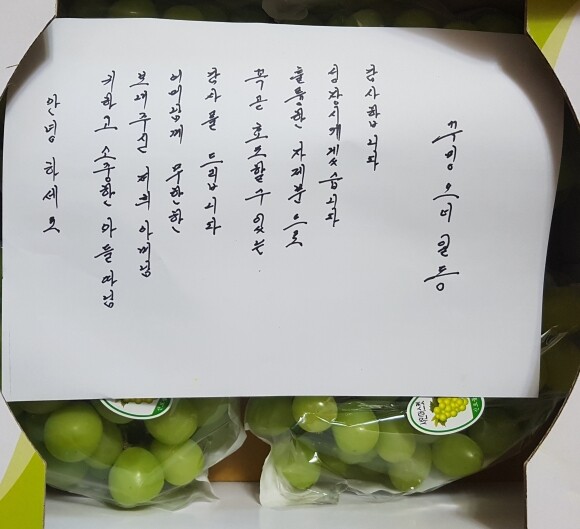 안녕 하세요
귀하고 소중한 아들 따님
보내주신 저희 아버님
어머님께 무한한
감사를 드립니다
꼭 곧 효도할수 있는
훌륭한 자제분으로
성장시키겠습니다
감사합니다
일동